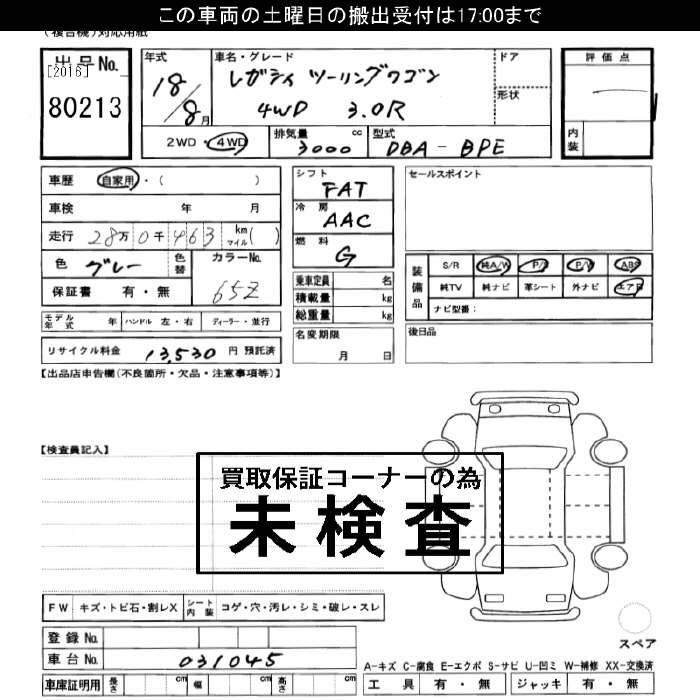 この車両の土曜日の搬出受付は17:00まで
(複合機)対応用紙
出品No.
[2016]
80213
年式 18/8月
車名・グレード
レガシィ ツーリングワゴン
4WD 3.0R
ドア
形状
評価点
内装
2WD・4WD
排気量 3000 cc
型式 DBA-BPE
車歴 自家用・( )
車検 年 月
走行 28万0千463 km マイル( )
色 グレー 色替 カラーNo. 65Z
保証書 有・無
モデル年式 年 ハンドル 左・右 ディーラー・並行
リサイクル料金 13,530 円 預託済
シフト FAT
冷房 AAC
燃料 G
乗車定員 名
積載量 kg
総重量 kg
名変期限
月 日
セールスポイント
装備品
S/R 純A/W P/S P/W ABS
純TV 純ナビ 革シート 外ナビ エアB
ナビ型番:
後日品
【出品店申告欄(不良箇所・欠品・注意事項等)】
【検査員記入】
買取保証コーナーの為
未検査
FW キズ・トビ石・割レX シート内装 コゲ・穴・汚レ・シミ・破レ・スレ
登録No.
車台No. 031045
車庫証明用 長さ cm 幅 cm 高さ cm
スペア
A-キズ C-腐食 E-エクボ S-サビ U-凹ミ W-補修 XX-交換済
工具 有・無 ジャッキ 有・無